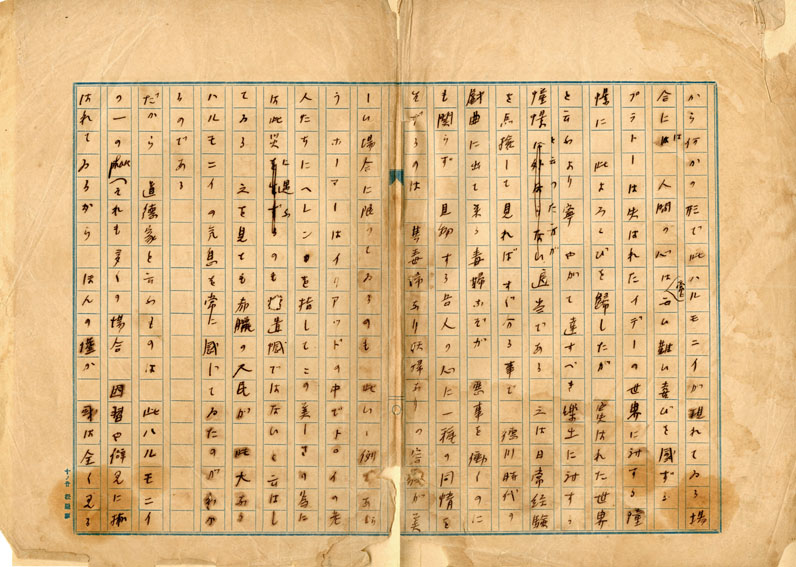 から何かの形で此ハルモニイが現れてゐる場
合には 人間の心は常に云ひ難い喜びを感ずる
プラトーは失はれたイデーの世界に対する憧
憬に 此よろこびを帰したが 失はれた世界
と云ふより寧 やがて達すべき楽土に対する
憧憬と云つた方が適当である 之は日常経験
を点検して見ればすぐ分る事で 徳川時代の
戯曲に出て来る毒婦などが 悪事を働くのに
も関らず 見物する吾人の心に一種の同情を
生ずるのは 其毒婦なり妖婦なりの容貌が美
しい場合に限つてゐるのも 此いゝ例であらう
ホーマーはイリアツドの中でトロイの老
人たちにヘレンを指してこの美しさの為に
は此災に遇ふのも 遺憾ではないと云はし
てゐる 之を見ても希臘の人民が 此大なる
ハルモニイの気息を常に感じてゐたのがわか
るのである
だから 道徳家と云ふものは 此ハルモニイ
の一の それも多くの場合 因習や僻見に捕
はれてゐるから ほんの僅か 或は全く見る